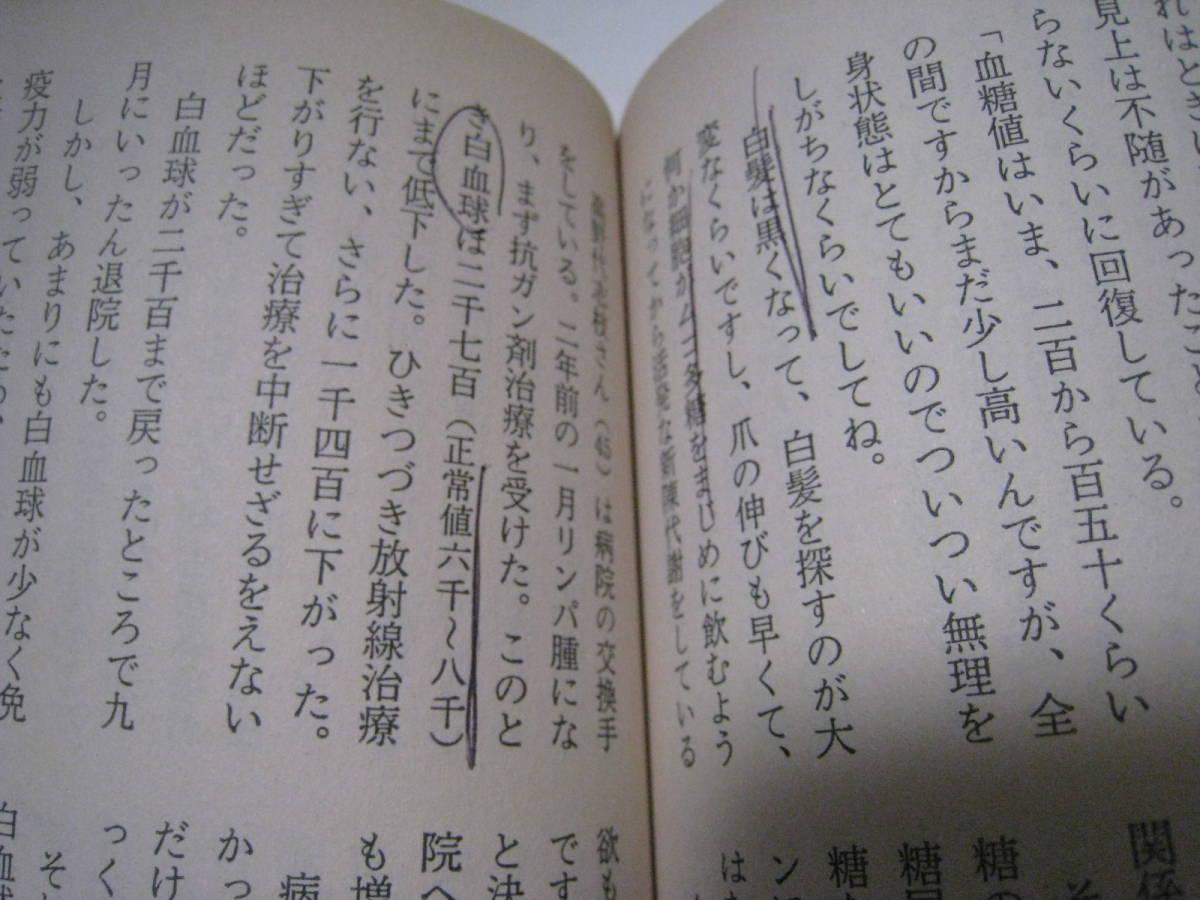 れはときい
見上は不随があったこと
らないくらいに回復している。
「血糖値はいま、二百から百五十くらい
の間ですからまだ少し高いんですが、全
身状態はとてもいいのでついつい無理を
しがちなくらいでしてね。
白髪は黒くなって、白髪を探すのが大
変なくらいですし、爪の伸びも早くて、
何か細胞がムコ多糖をまじめに飲むよう
になってから活発な新陳代謝をしている
関係
糖の
糖尿
糖
ン
は
さん(45)は病院の交換手
をしている。二年前の一月リンパ腫にな
り、まず抗ガン剤治療を受けた。このと
き白血球は二千七百(正常値六千〜八千)
にまで低下した。ひきつづき放射線治療
を行ない、さらに一千四百に下がった。
下がりすぎて治療を中断せざるをえない
ほどだった。
白血球が二千百まで戻ったところで九
月にいったん退院した。
しかし、あまりにも白血球が少なく免
疫力が弱っていたため
欲も
です
と決
院へ
も増
病
かっ
だけ
っく
そ
白血球